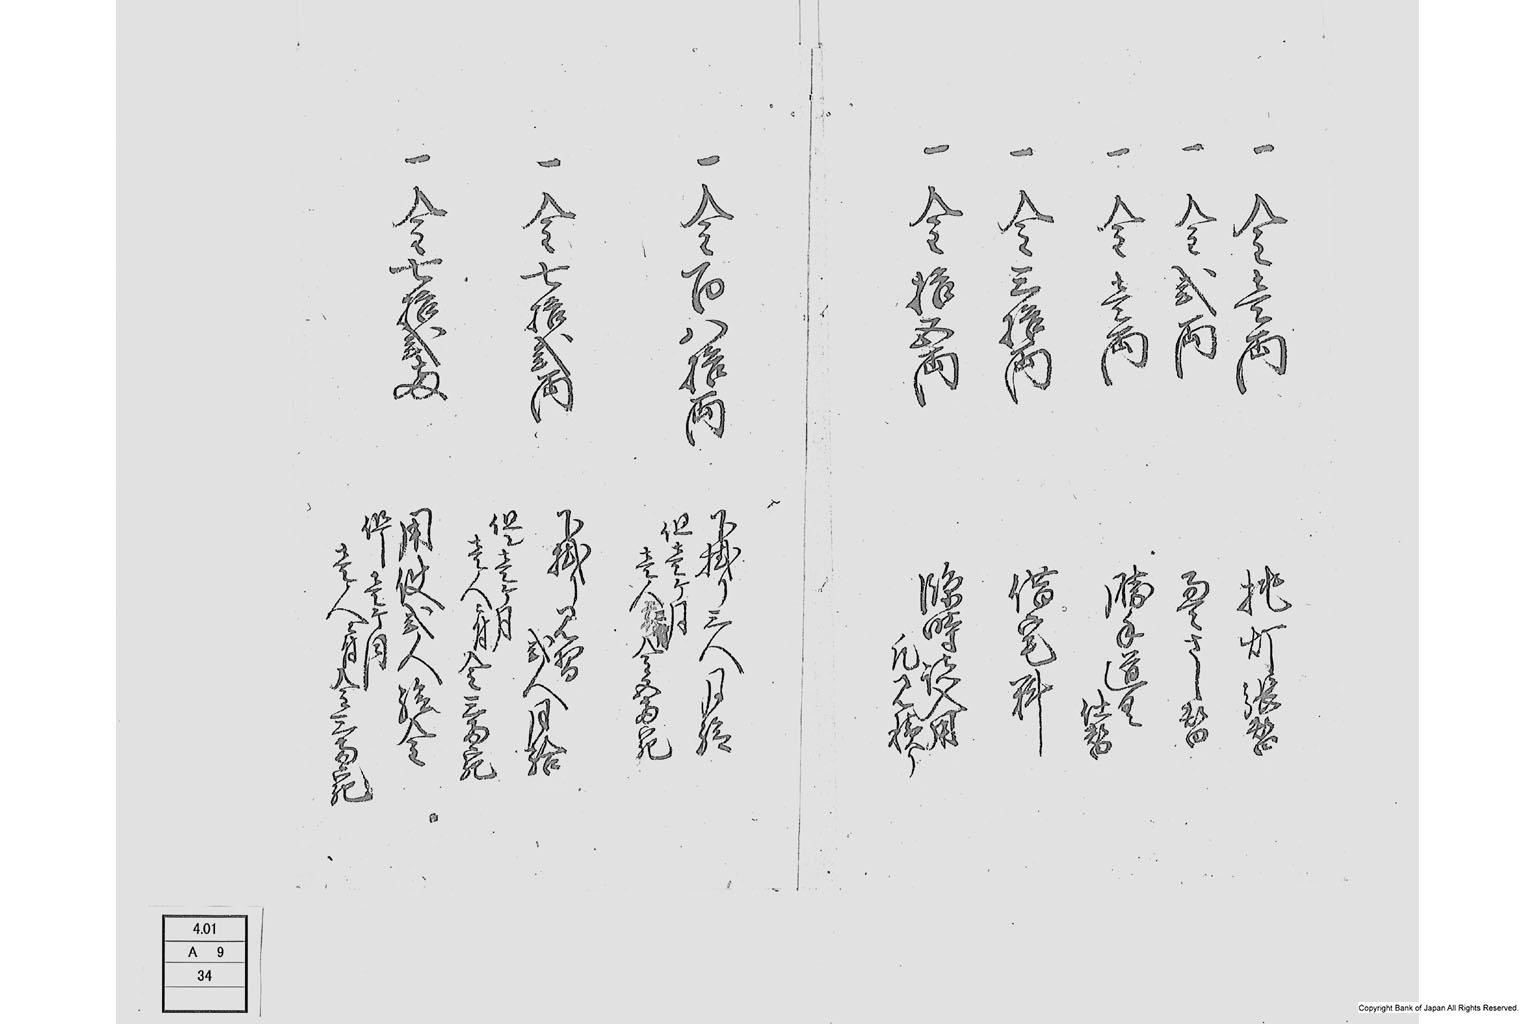 一 金壱両 挑灯張替
一 金弐両 畳さし替
一 金壱両 勝手道具
仕替
一 金三拾両 借宅料
一 金拾五両 臨時諸入用
凡見積り
一 金百八拾両 下掛り三人月給
但壱ケ月
壱人金五両宛
一 金七拾弐両 下掛り見習
弐人月給
但壱ケ月
壱人ニ付金三両宛
一 金七拾弐両 用使弐人給金
但壱ケ月
壱人ニ付金三両宛
4.01
A 9
34
Copyright Bank of Japan All Rights Reserved.